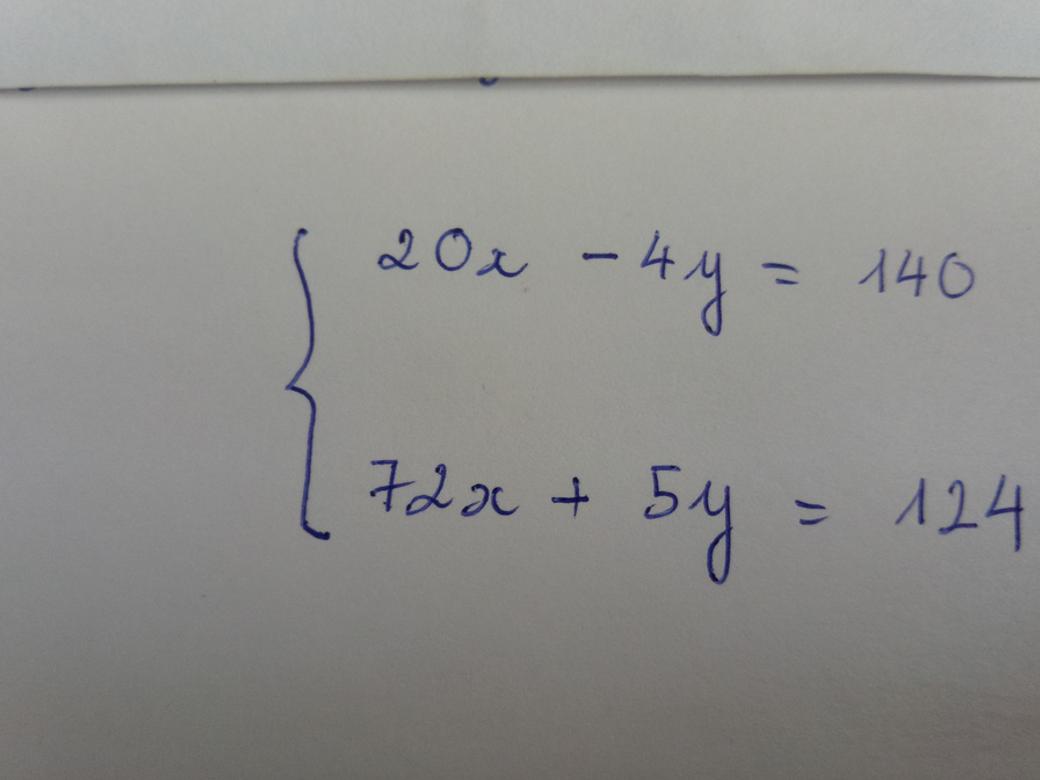 20x - 4y = 140
72x + 5y = 124